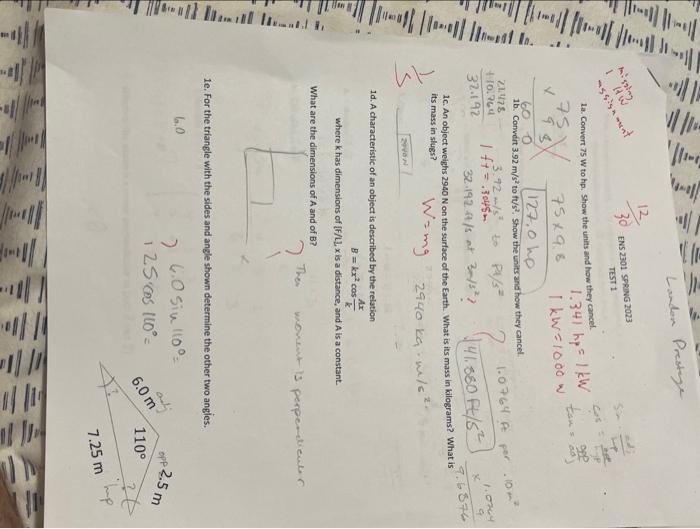 London Prestage
missing
1 HW
assignment
12
30
ENS 2301 SPRING 2023
TEST 1
1a. Convert 75 W to hp. Show the units and how they cancel.
75 x 9.8
1.341 hp = 1 kW
1 kW = 1000 W
tan =
75
x 9.8
60 0
127.0 hp
1b. Convert 3.92 m/s² to ft/s². Show the units and how they cancel.
3.92 m/s² to ft/s²
1 ft = .3048m
?
1.0764 ft per .10 m²
+10.764
32.192
32.192 ft/s at 3m/s²?
41.880 ft/s²
9.6876
1c. An object weighs 2940 N on the surface of the Earth. What is its mass in kilograms? What is
its mass in slugs?
W = mg
2940 kg·m/s²
1
5
1d. A characteristic of an object is described by the relation
B = kx² cos Ax/k
where k has dimensions of [F/L], x is a distance, and A is a constant.
What are the dimensions of A and of B?
? The moment is perpendicular
1e. For the triangle with the sides and angle shown determine the other two angles.
6.0
? 6.0 sin 110° =
2.5 cos 110° =
adj
6.0 m
110°
opp 2.5 m
?
7.25 m
hyp